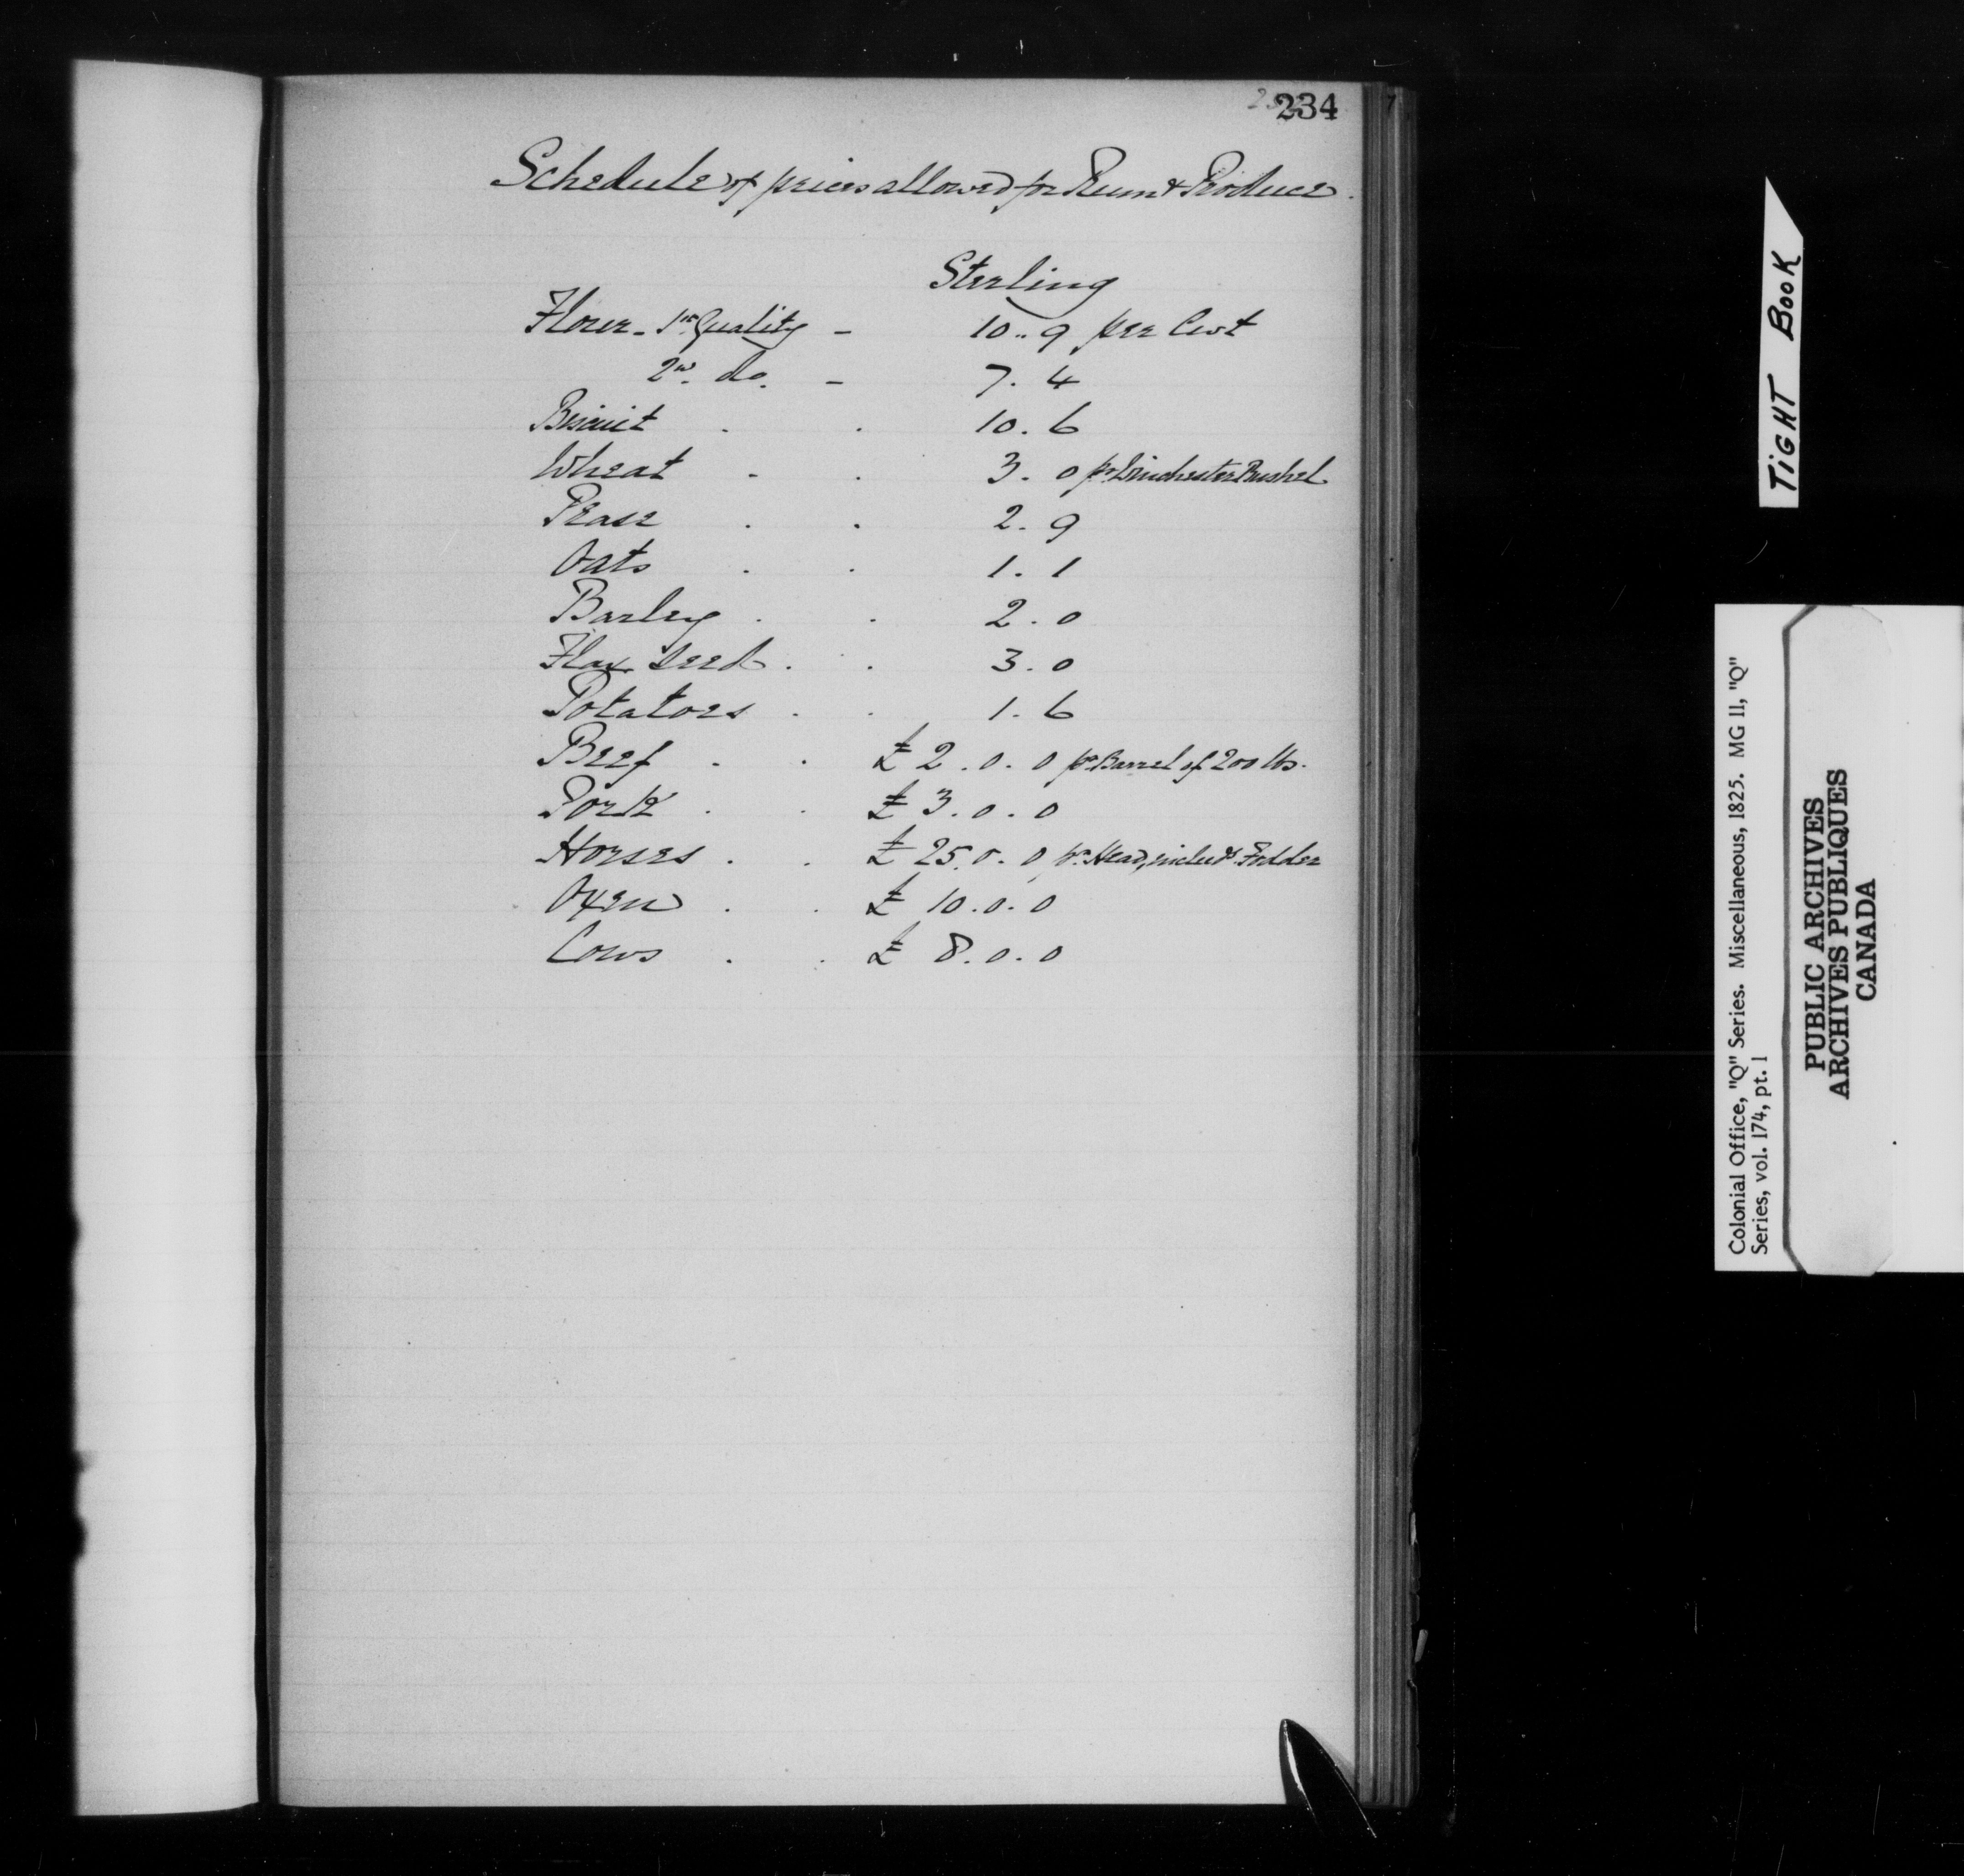 234
Schedule of prices allowed for Rum & Produce.
Sterling
Flour - 1st Quality - 10..9 per Cwt
2nd. do. - 7. 4
Biscuit . . 10. 6
Wheat . . 3. 0 pr Winchester Bushel
Pease . . 2. 9
Oats . . 1. 1
Barley . . 2. 0
Flax seed . . 3. 0
Potatoes . . 1. 6
Beef . . £ 2. 0. 0 pr Barrel of 200 lbs.
Pork . . £ 3. 0. 0
Horses . . £ 25. 0. 0 pr Head, includg Fodder
Oxen . . £ 10. 0. 0
Cows . . £ 8. 0. 0
TIGHT BOOK
Colonial Office, "Q" Series. Miscellaneous, 1825. MG 11, "Q"
Series, vol. 174, pt. 1
PUBLIC ARCHIVES
ARCHIVES PUBLIQUES
CANADA